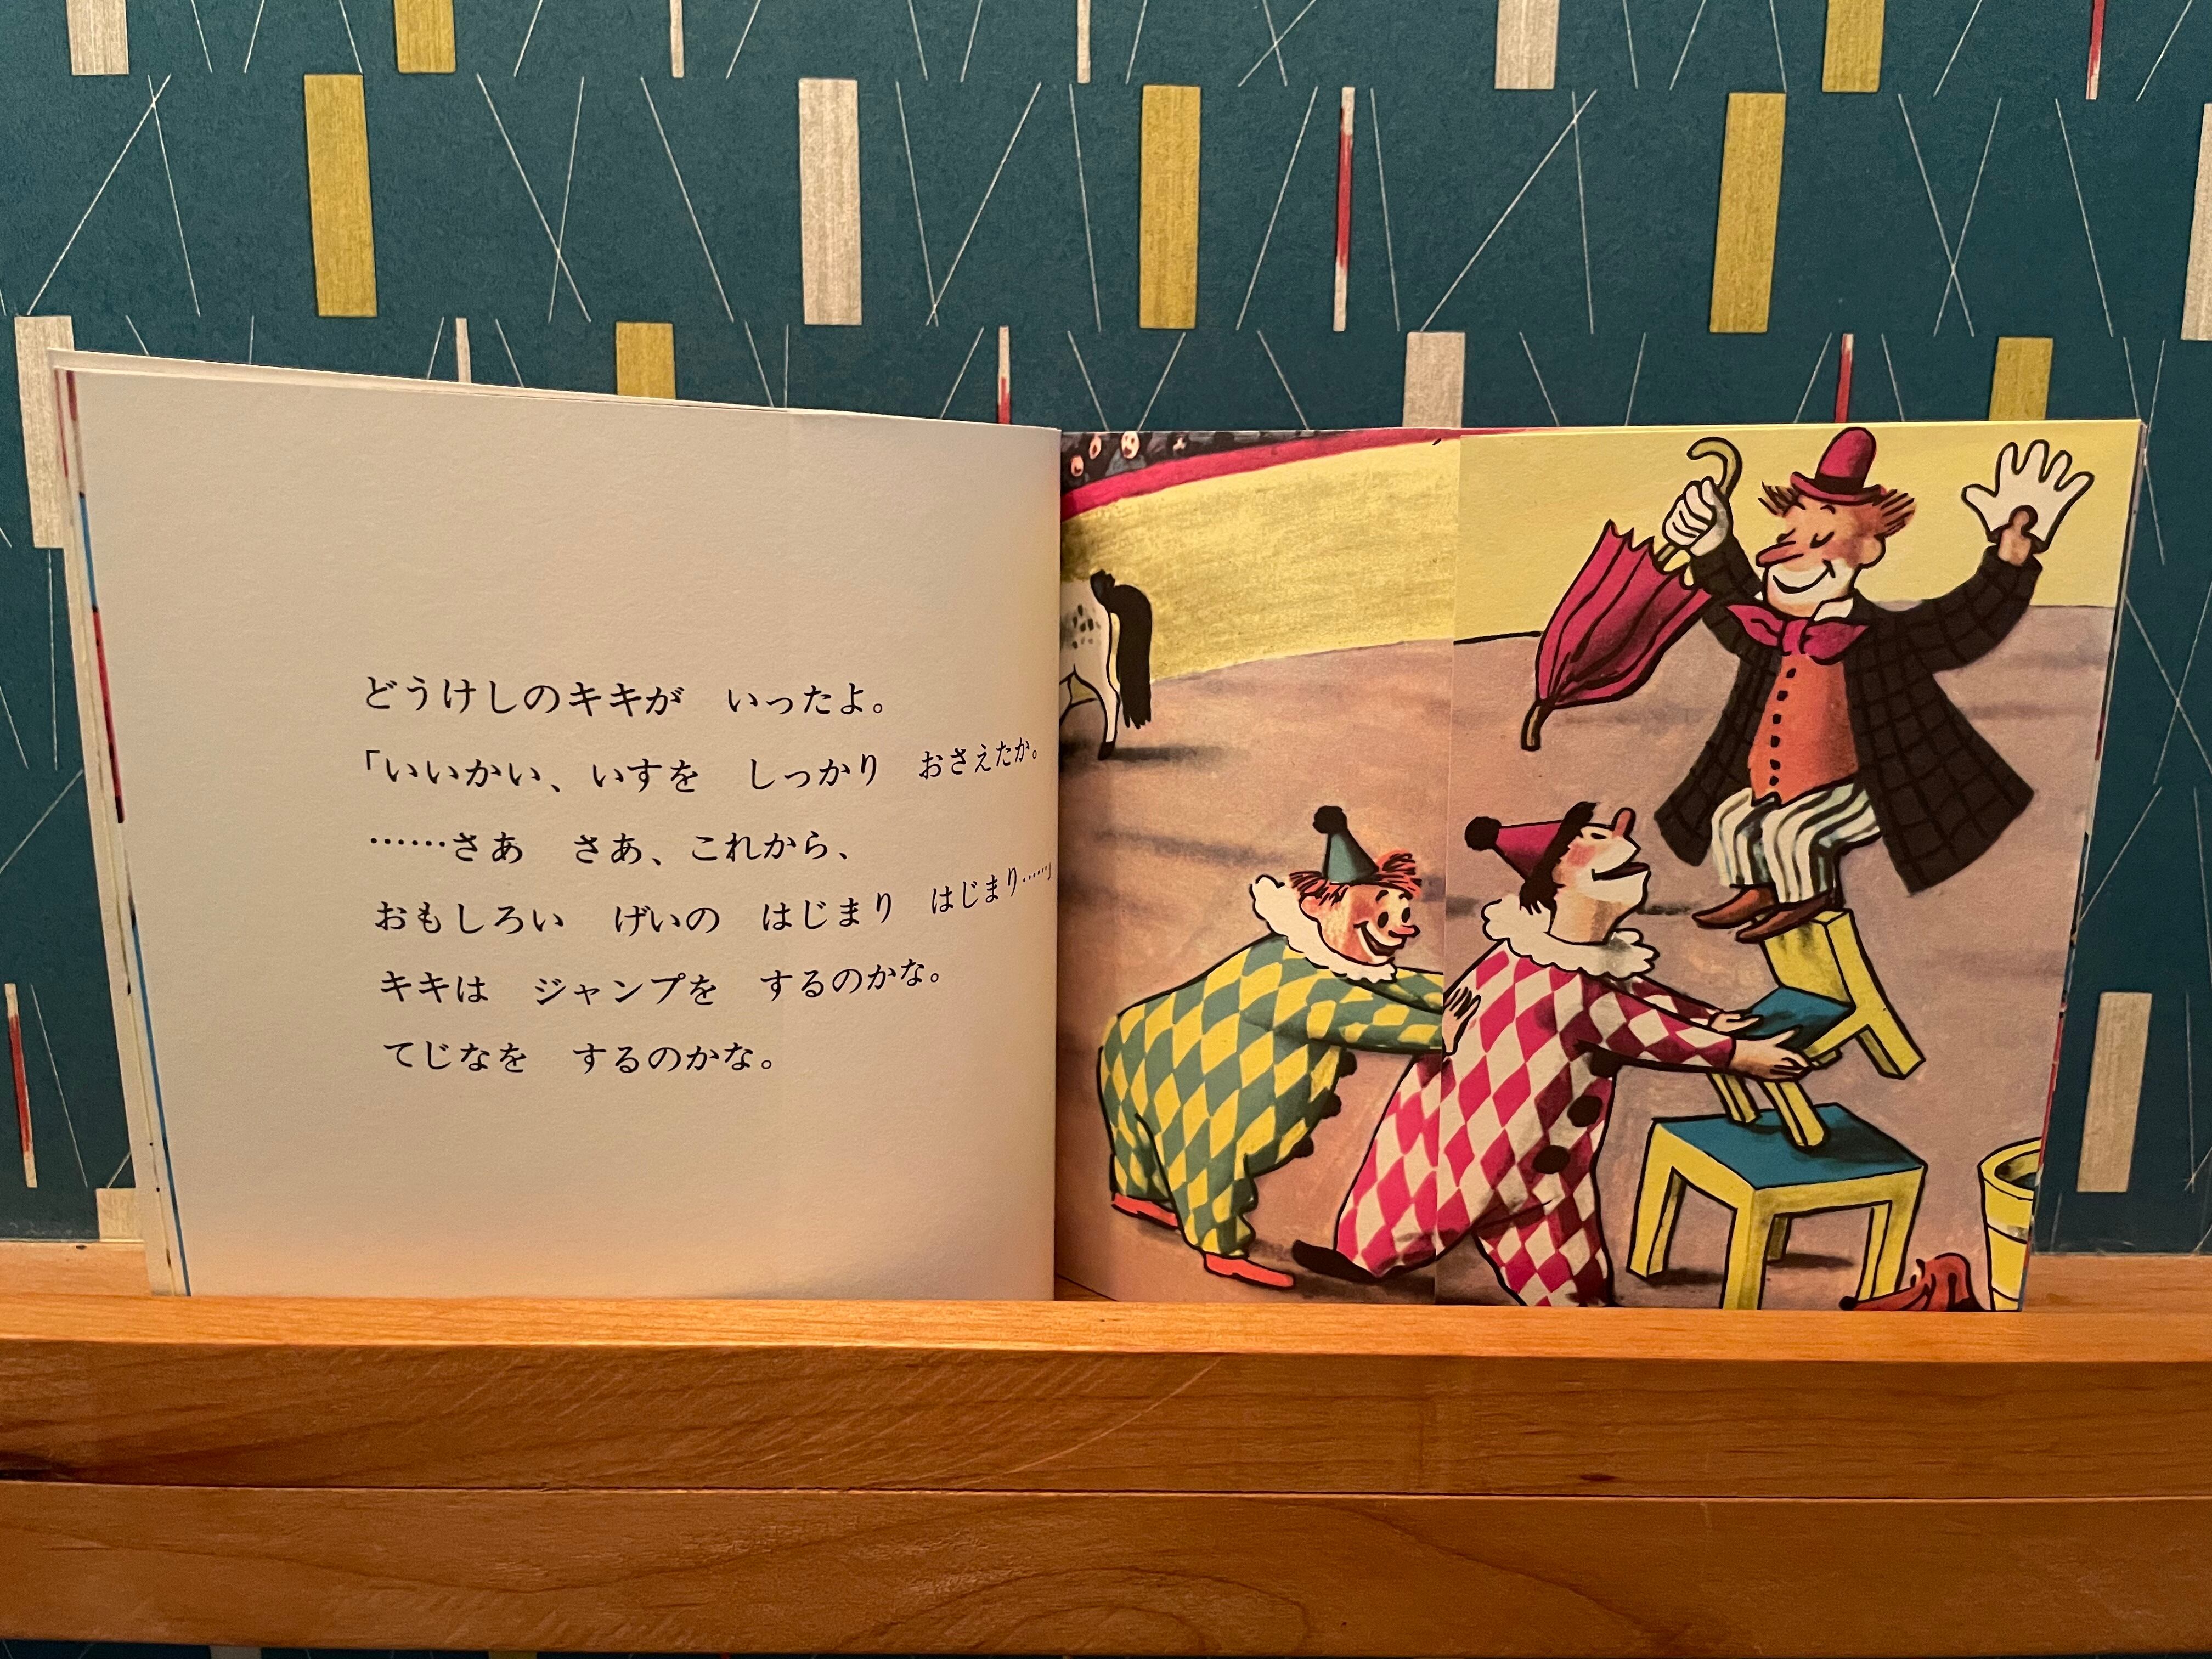 どうけしのキキが　いったよ。
「いいかい、いすを　しっかり　おさえたか。
……さあ　さあ、これから、
おもしろい　げいの　はじまり　はじまり……」
キキは　ジャンプを　するのかな。
てじなを　するのかな。